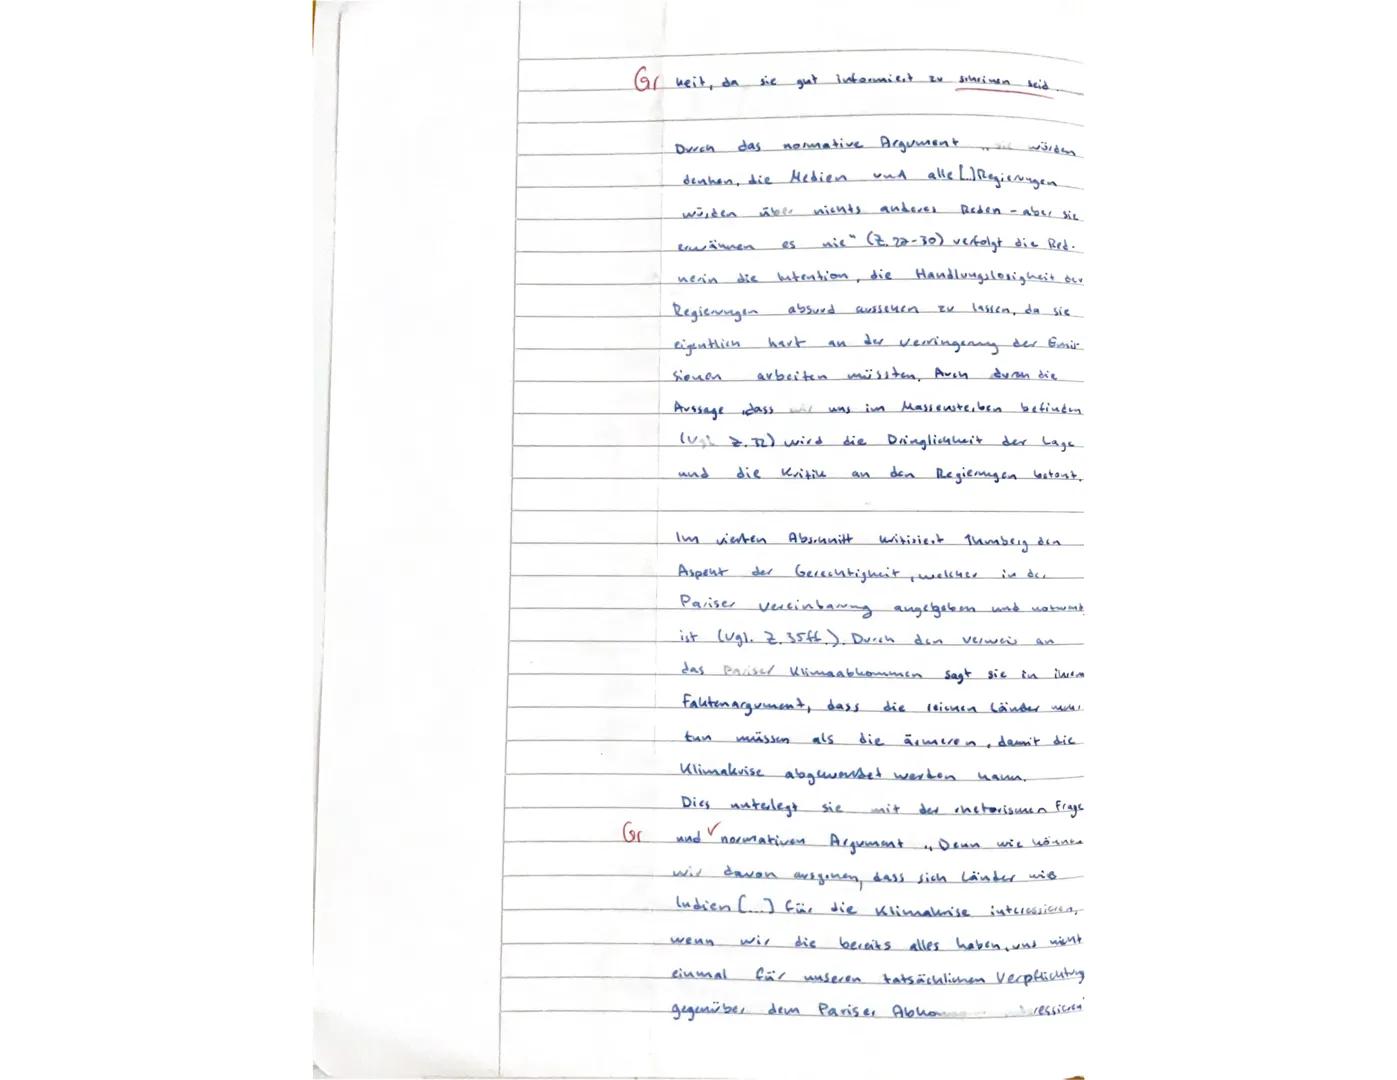 Gr keit, da sie gut informiert zu scheinen seid.
Durch das normative Argument „ würden
denken, die Medien und alle [..] Regierungen
würden über nichts anderes Reden - aber sie
erwähnen es nie" (Z. 27-30) verfolgt die Red-
nerin die Intention, die Handlungslosigkeit der
Regierungen absurd aussehen zu lassen, da sie
eigentlich hart an der Verringerung der Emis-
sionen arbeiten müssten. Auch durch die
Aussage, dass wir uns im Massensterben befinden
(Vgl. Z. 32) wird die Dringlichkeit der Lage
und die Kritik an den Regierungen betont.
Im vierten Abschnitt kritisiert Thunberg den
Aspekt der Gerechtigkeit, welcher in der
Pariser Vereinbarung angegeben und
ist (Vgl. Z. 35ff.). Durch den Verweis an
das Pariser Klimaabkommen sagt sie in ihrem
Faktenargument, dass die reichen Länder mehr
tun müssen als die ärmeren, damit die
Klimakrise abgewendet werden kann.
Dies unterlegt sie mit der rhetorischen Frage
Gr und normativen Argument „Denn wie können
wir davon ausgehen, dass sich Länder wie
Indien [...] für die Klimakrise interessieren,
wenn wir die bereits alles haben, und nicht
einmal für unseren tatsächlichen Verpflichtung
gegenüber dem Pariser